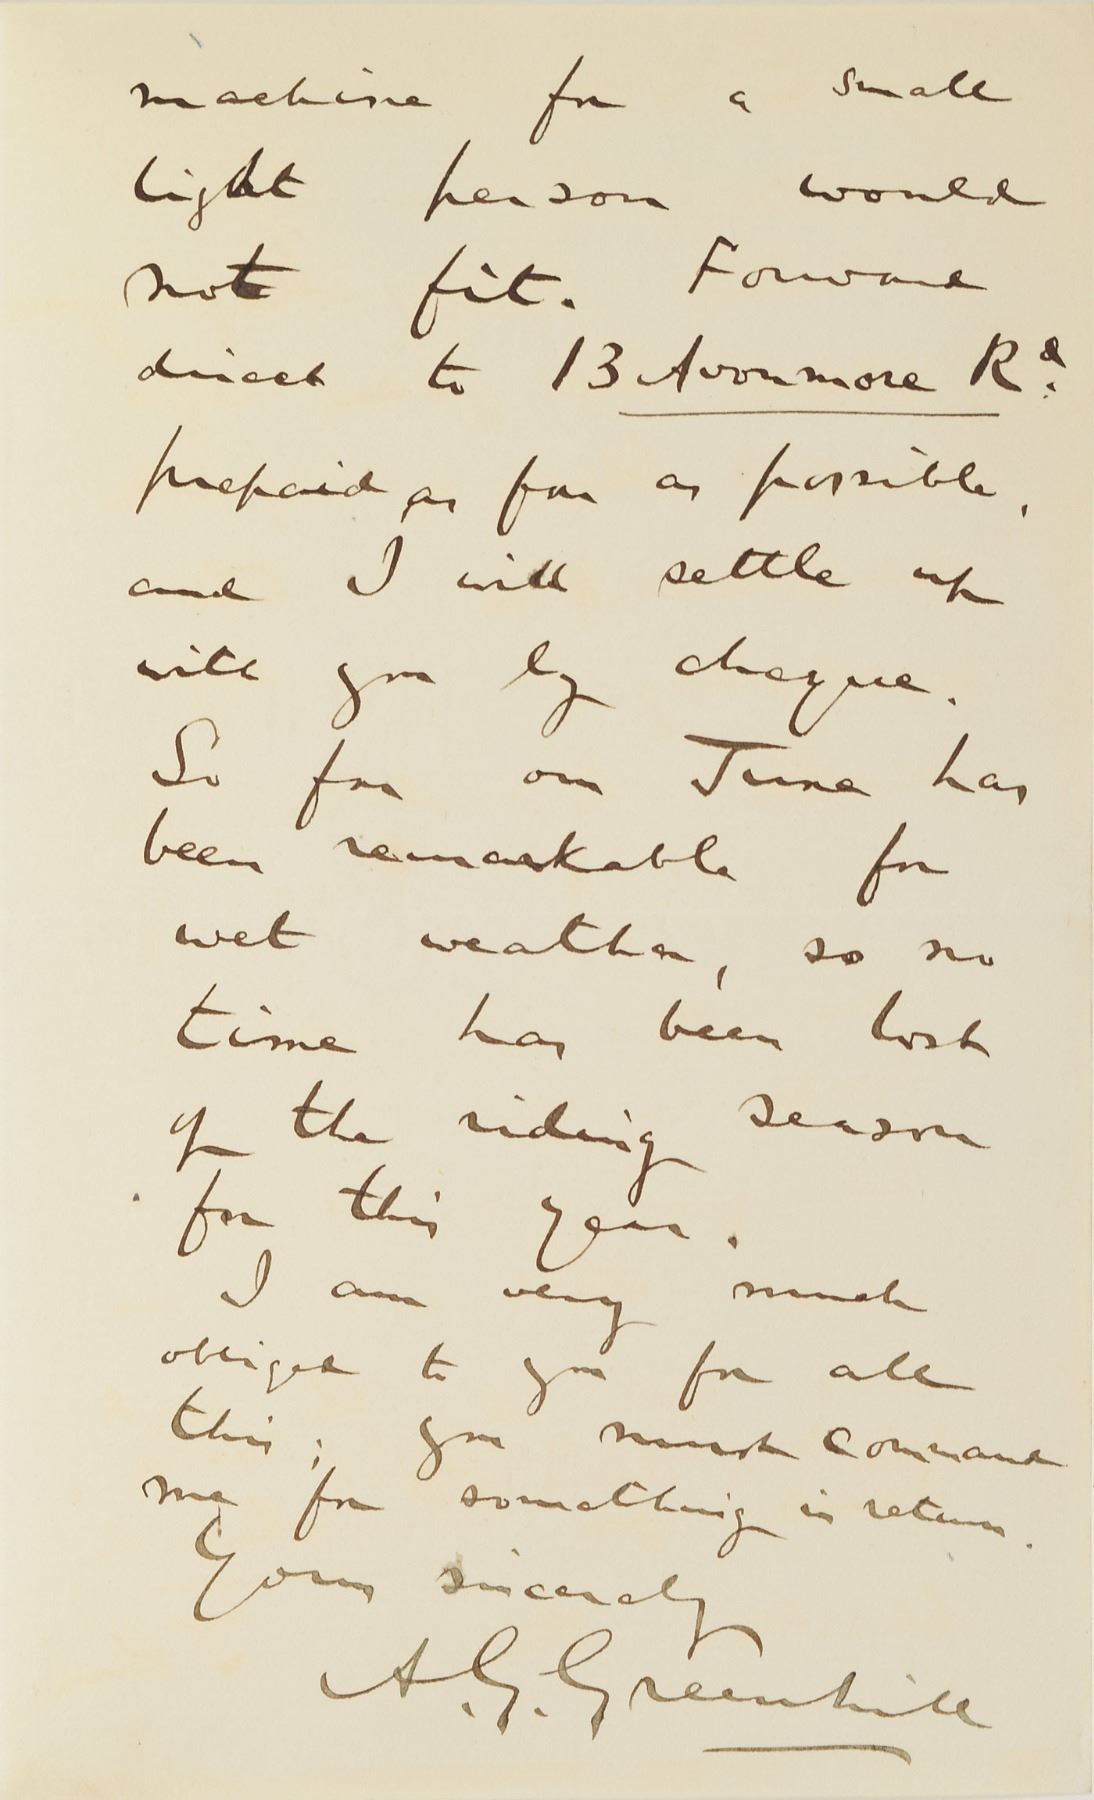 machine for a small
light person would
not fit. Forward
direct to 13 Avonmore Rd.
prepaid as far as possible,
and I will settle up
with you by cheque.
So far our June has
been remarkable for
wet weather, so no
time has been lost
of the riding season
for this year.
I am very much
obliged to you for all
this; you must command
me for something in return.
Yours sincerely
A.G. Greenhill